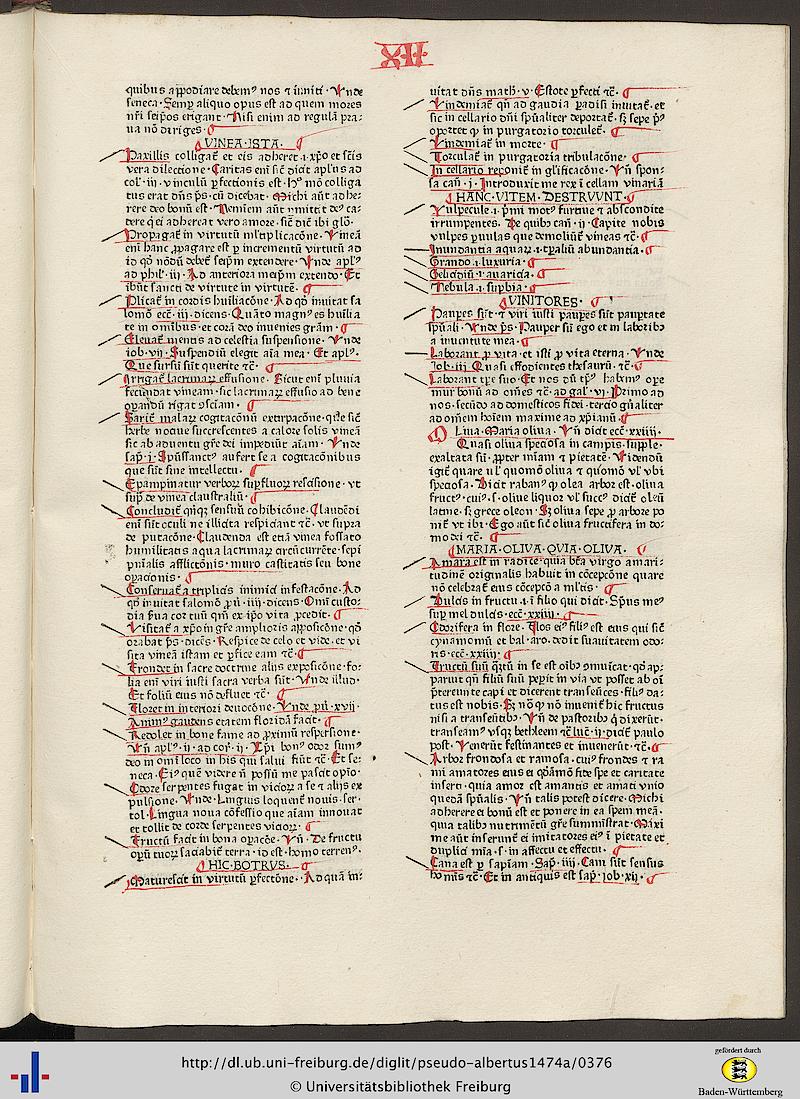 XII
quibus appodiare debemꝰ nos ⁊ inniti · Vnde
seneca · Semꝑ aliquo opus est ad quem mores
nr̃i seip̃os erigant · Nisi enim ad regulã pra-
ua nõ diriges ·
VINEA · ISTA ·
Paxillis colligat̃ et eis adheret · i · xp̃o et sc̃is
vera dilectione · Caritas eni sic̃ dicit apl̃us ad
col̃ · iij · vinculũ ꝑfectionis est
tus erat dñs p̃s · cũ dicebat · Michi aũt adhe-
rere deo bonũ est · Neminem aũt
dere q̇ ei adhereat vero amore · sic̃
Propagat̃ in virtutũ ml̃tiplicacõne · Vineã
eni hanc ꝓpagare est ꝑ incrementũ virtutũ ad
id qõ nõdũ debet̃ seip̃m extendere · Vnde apl̃ꝰ
ad phil̃ · iij · Ad anteriora meip̃m extendo · Et
ibũt sancti de virtute in virtutẽ ·
Plicat̃ in cordis huĩliacõne · Ad qõ inuitat sa
lomõ ecc̃ · iij · dicens · Quãto magnꝰ es humilia
te in omnibus et corã deo inuenies grãm ·
Eleuat̃ mentis ad celestia suspensione · Vnde
iob · vij · Suspendiũ elegit aĩa mea · Et apl̃ꝰ ·
Que sursũ sũt querite ⁊c̃ ·
Irrigat̃ lacrimaꝝ effusione · Sicut eni pluuia
fecundat vineam · sic lacrimaꝝ effusio ad bene
oꝑandũ rigat
Sarit̃ malaꝝ cogitacõnũ extirpacõne · que sic̃
herbe nociue succrescentes a calore solis vineã
sic ab aduentu grẽ dei impediũt aĩam · Vnde
sap̃ · j · Sp̃ussanctꝰ aufert se a cogitacõnibus
que sũt sine intellectu ·
Epampinatur verboꝝ suꝑfluoꝝ rescisione · vt
sup̃ de vinea claustraliũ ·
Concludit̃ quĩqꝫ sensuũ cohibicõne · Claudẽdi
eni sũt oculi ne illicita respiciant ⁊c̃ · vt supra
de putacõne · Claudenda est etiã vinea fossato
humilitatis aqua lacrimaꝝ circũcurrẽte · sepi
pnĩalis afflictõnis · muro castitatis seu bone
oꝑacionis ·
Conseruat̃ a triplicis inimici infestacõne · Ad
qõ inuitat salomõ ꝓũ · iiij · dicens · Omĩ custo-
dia s̃ua cor tuũ qm̃ ex ip̃o vita ꝓcedit ·
Visitat̃ a xp̃o in grẽ amplioris apposicõne · qõ
orabat p̃s · dicẽs · Respice de celo et vide · et vi
sita vineã istam et ꝑfice eam ⁊c̃ ·
Frondet in sacre doctrine alijs exposicõne · fo-
lia eni viri iusti sacra verba sũt · Vnde illud ·
Et foliũ eius nõ defluet ⁊c̃ ·
Floret in interiori deuocõne · Vnde ꝓũ · xvij ·
Animꝰ gaudens etatem floridã facit ·
Redolet in bone fame ad ꝓximũ respersione ·
Vñ apl̃ꝰ · ij · ad cor̃ · ij · Xp̃i bonꝰ odor sumꝰ
deo in omĩ loco in his qui salui fiũt ⁊c̃ · Et se-
neca · Eiꝰ quẽ videre nõ possũ me pascit opĩo ·
Odore serpentes fugat in vicioꝝ a se ⁊ alijs ex
pulsione · Vnde · Linguis loquent̃ nouis · ser-
tol̃ · Lingua noua cõfessio que aĩam innouat
et tollit de corde serpentes vicioꝝ ·
Fructũ facit in bona oꝑacõe · Vñ · De fructu
operũ tuoꝝ saciabit̃ terra · id est · homo terrenꝰ ·
HIC · BOTRVS ·
Maturescit in virtutũ ꝑfectõne · Ad quã in-
uitat dñs math̃ · v · Estote ꝑfecti ⁊c̃ ·
Vindemiat̃ qñ ad gaudia padisi inuitat̃ · et
sic in cellario dñi sp̃ualiter deportat̃ · sꝫ sepe pꝰ
oportet ꝙ in purgatorio torculet̃ ·
Vindemiat̃ in morte ·
Torculat̃ in purgatoria tribulacõne ·
In cellario reponit̃ in gl̃ificacõne · Vñ spon-
sa cañ · j · Introduxit me rex ĩ cellam vinariã
HANC · VITEM · DESTRVVNT ·
Vulpecule · i · pꝰmi motꝰ furtiue ⁊ abscondite
irrumpentes · De quibꝰ cañ · ij · Capite nobis
vulpes pꝰuulas que demoliũt̃ vineas ⁊c̃ ·
Inundantia aquaꝝ · i · tꝑaliũ abundantia ·
Grando · i · luxuria ·
Gelicidiũ · i · auaricia ·
Nebula · i · sup̃bia ·
VINITORES ·
Pauꝑes sũt · ⁊ viri iusti pauꝑes sũt pauꝑtate
sp̃uali · Vnde p̃s · Pauper sũ ego et in laboribꝰ
a iuuentute mea ·
Laborant ꝓ vita · et isti ꝓ vita eterna · Vnde
Iob · iij · Quasi effodientes thesaurũ · ⁊c̃ ·
Laborant tꝑe suo · Et nos dũ tp̃ꝰ habemꝰ oꝑe
mur bonũ ad oẽs ⁊c̃ · ad gal̃ · vj · Primo ad
nos · secũdo ad domesticos fidei · tercio gñaliter
ad omẽm hoĩem maxime ad xp̃ianũ ·
Oliua · Maria oliua · Vñ dicit ecc̃ · xxiiij ·
Quasi oliua speciosa in campis · supple ·
exaltata sũ · ꝓpter mĩam ⁊ pietatẽ · Videndũ
igit̃ quare vl̃ quomõ oliua ⁊ quomõ vl̃ vbi
speciosa · Dicit rabanꝰ ꝙ olea arbor est · oliua
fructꝰ · cuiꝰ · s · oliue liquor vl̃ succꝰ dicit̃ oleũ
latine · sꝫ grece oleon · Sꝫ oliua sepe ꝓ arbore po
nit̃ vt ibi · Ego aũt sic̃ oliua fructifera in do-
mo dei ⁊c̃ ·
MARIA · OLIVA · QVIA · OLIVA ·
Amara est in radice · quia bt̃a virgo amari-
tudinẽ originalis habuit in cõcepcõne quare
nõ celebrat̃ eius cõcepcõne a ml̃tis ·
Dulcis in fructu · i · ĩ filio qui dicit · Sp̃us meꝰ
suꝑ mel dulcis · ecc̃ · xxiiij ·
Odorifera in flore · Flos eiꝰ filiꝰ est eius qui sic̃
cynamomũ et bal̃ · aro · dedit suauitatem odo-
ris · ecc̃ · xxiiij ·
Fructũ suũ quẽtũ in se est oĩbꝰ cõmuicat · qõ ap-
paruit qñ filiũ suũ peꝑit in via vt posset ab oĩ
p̃tereunte capi et dicerent transeũtes · filiꝰ da-
tus est nobis · Sꝫ nõ qꝰ nõ inuenit̃ hic fructus
nisi a transeũtibꝰ · Vñ de pastoribꝰ q̇ dixerũt ·
transeamꝰ vsqꝫ bethleem ⁊c̃ luc̃ · ij · dicit̃ paulo
post · Venerũt festinantes et inuenerũt · ⁊c̃ ·
Arbor frondosa et ramosa · cuiꝰ frondes ⁊ ra
mi amatores eius ei quodãmõ fide spe et caritate
inserti · quia amor est amantis et amati vnio
quedã sp̃ualis · Vñ talis potest dicere · Michi
adherere ei bonũ est et ponere in ea spem meã ·
quia talibꝰ nutrimẽtũ grẽ sumministrat · Maxi
me aũt inserunt̃ ei imitatores eiꝰ ĩ pietate et
duplici mĩa · s · in affectu et effectu ·
Cana est ꝑ sapiam · Sap̃ · iiij · Cani sũt sensus
homĩs ⁊c̃ · Et in antiquis est sap̃ · iob · xij ·
http://dl.ub.uni-freiburg.de/diglit/pseudo-albertus1474a/0376
© Universitätsbibliothek Freiburg
gefördert durch
Baden-Württemberg